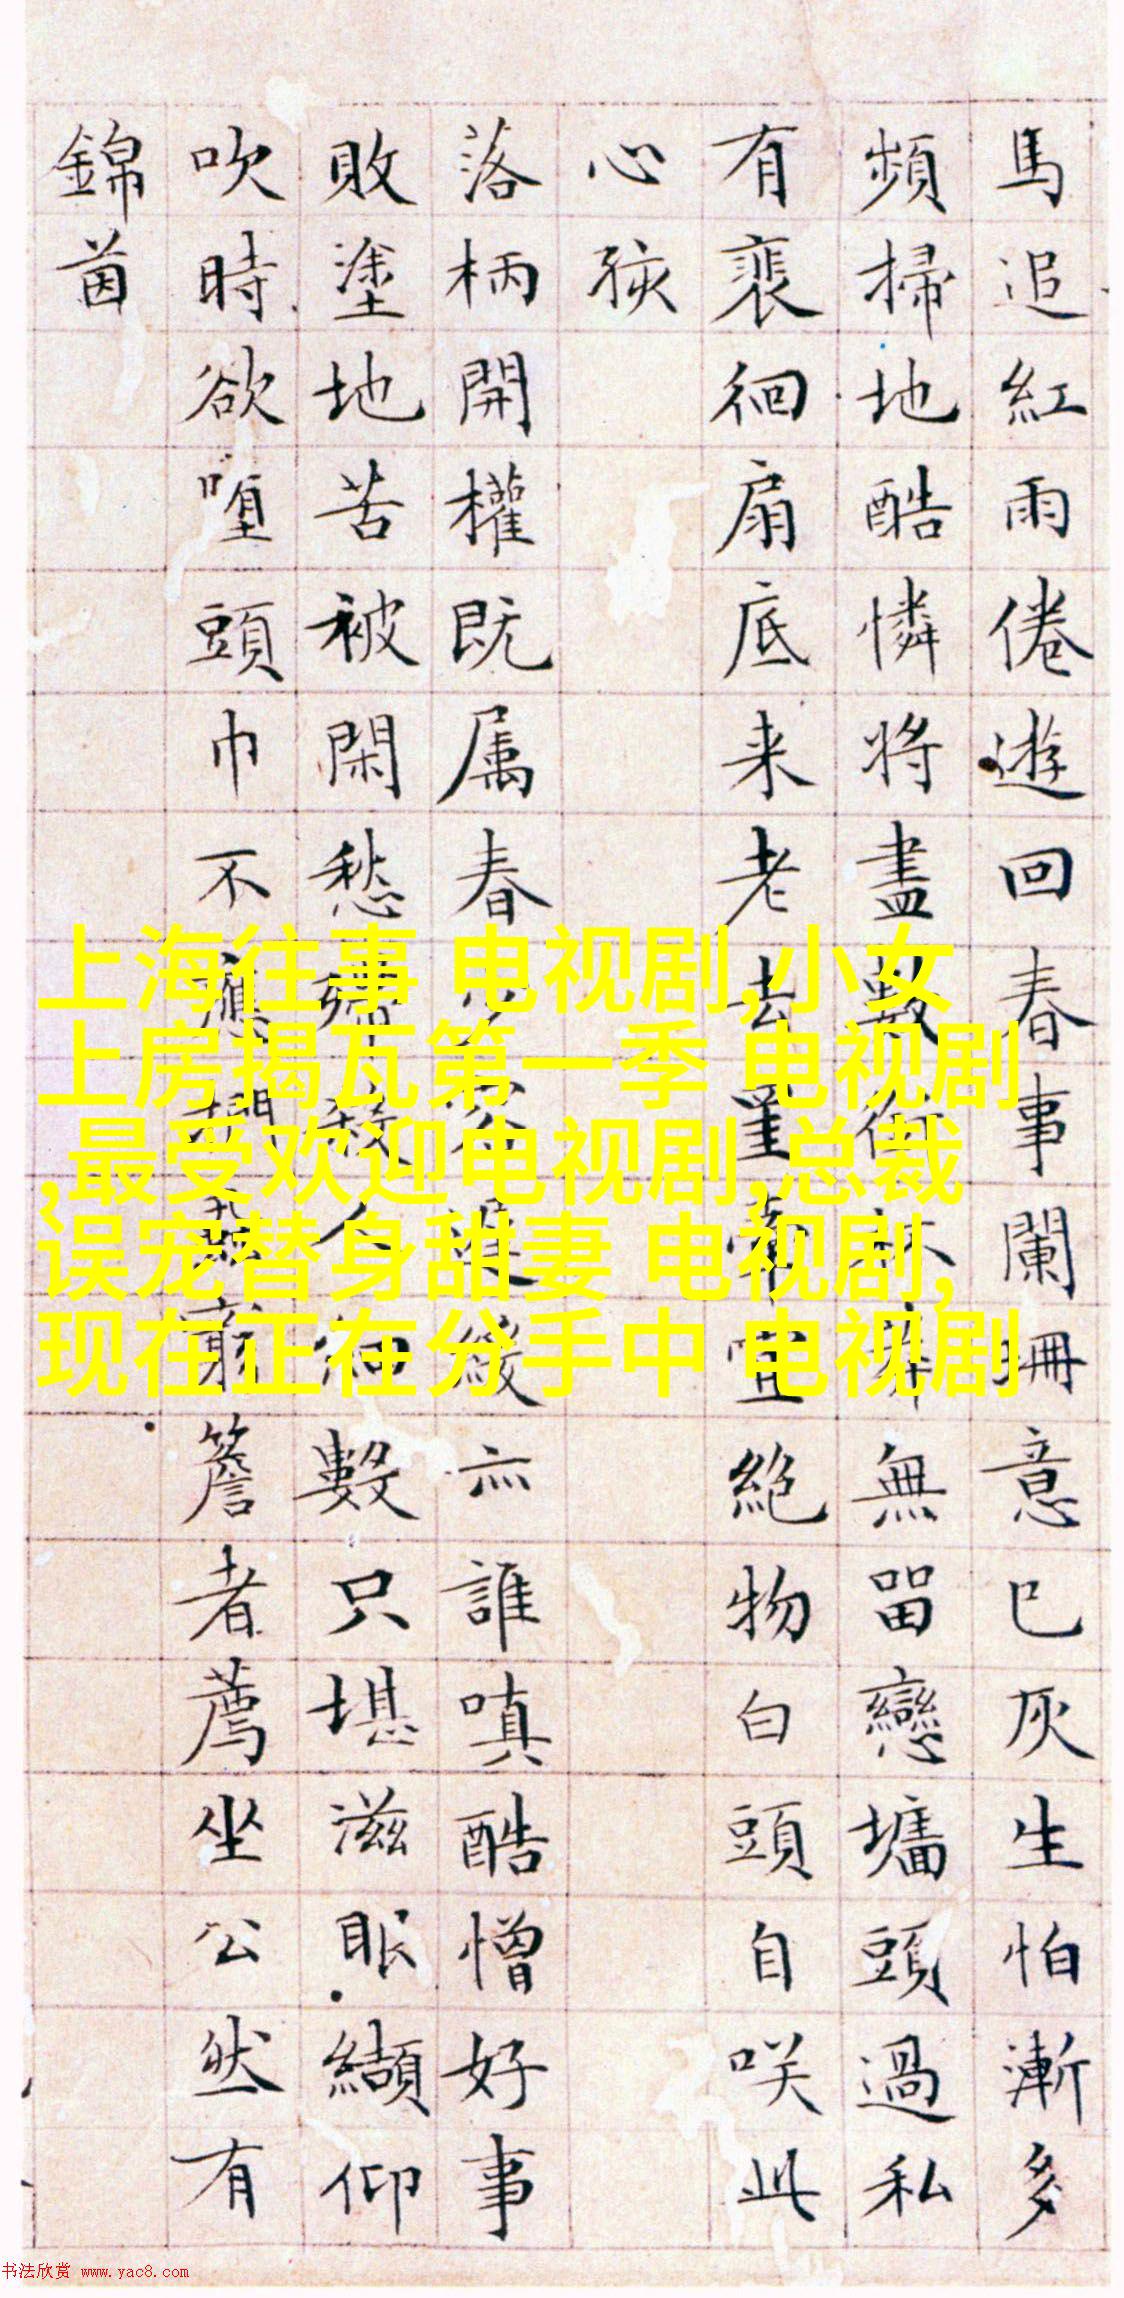 馬追紅雨倦遊回春事闌珊意已灰生怕漸多
頻掃地酷憐將盡數銜杯無留戀墻頭過私
有裵徊扇底来老去罣絶物白頭自咲此
心孩
落柄開權既属春緩亦誰嗔酷憎好事
敗塗地苦被閑愁殺人細數只堪滋眼纈仰
吹時欲墮頭巾不應簷者薦坐公然有
錦茵
上海往事 电视剧,小女
上房揭瓦第一季 电视剧
,最受欢迎电视剧,总裁
误宠替身甜妻 电视剧,
现在正在分手中 电视剧
书法欣赏 www.yac8.com